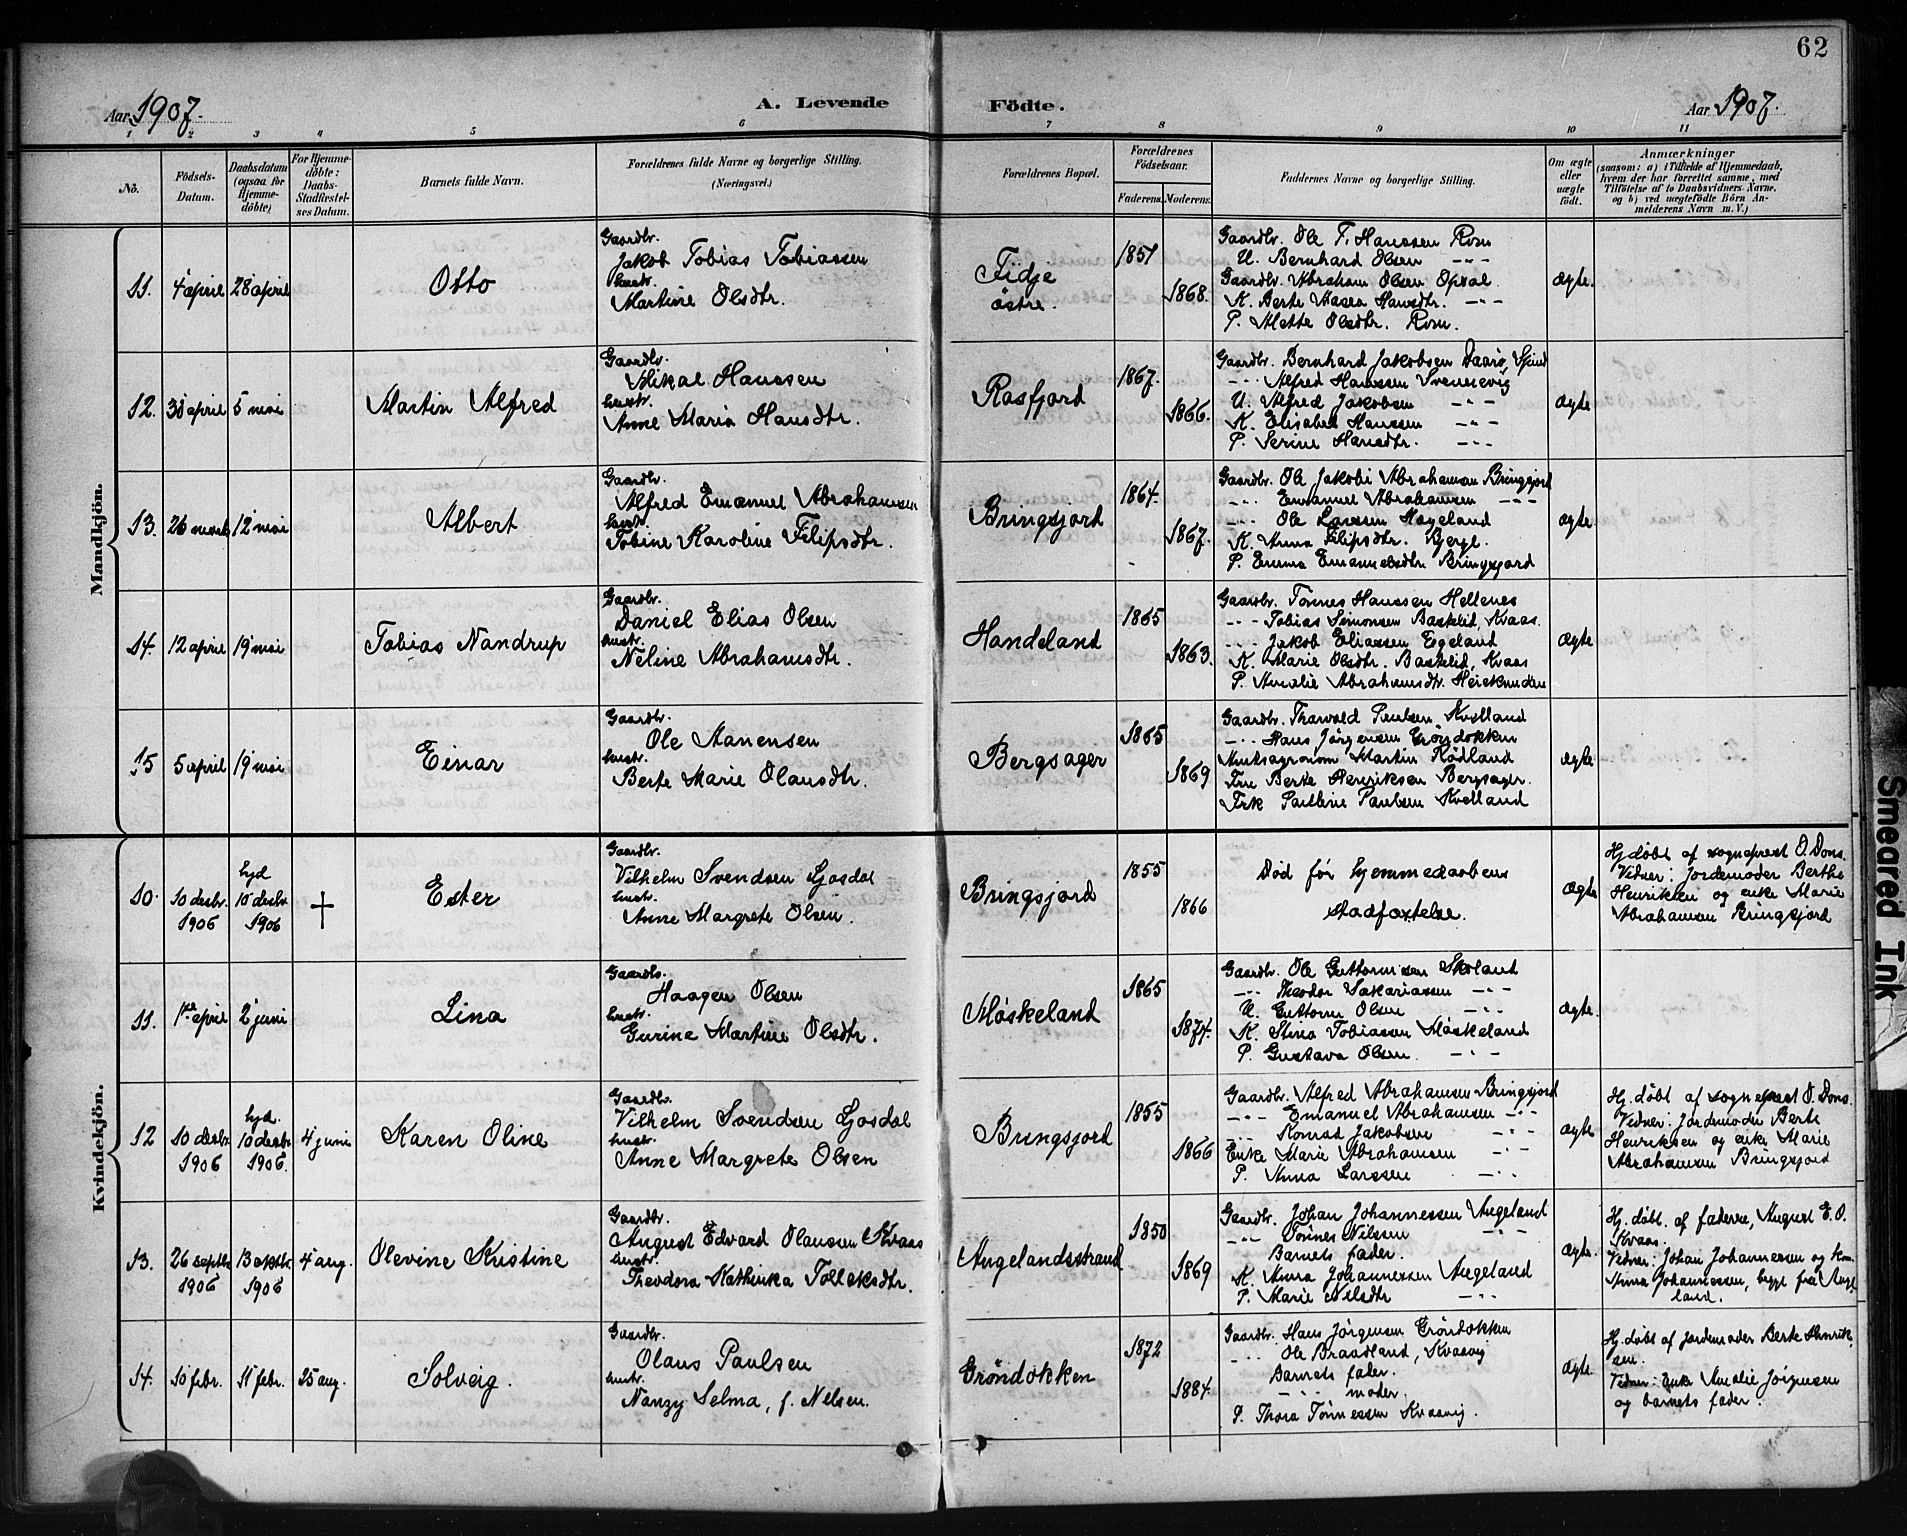 62
Aar 1907.
A. Levende Födte.
Aar 1907.
1 2 3 4 5 6 7 8 9 10 11
No.
Födsels-Datum.
Daabsdatum (ogsaa for Hjemme-döbte)
For Hjemme-döbte: Daabs-Stadfæstel-ses Datum.
Barnets fulde Navn.
Forældrenes fulde Navne og borgerlige Stilling.
(Næringsvei.)
Forældrenes Bopæl.
Forældrenes Födselsaar.
Faderens. Moderens.
Faddernes Navne og borgerlige Stilling.
Om ægte eller uægte födt.
Anmærkninger
(saasom: a) i Tilfælde af Hjemmedaab, hvem der har forrettet samme, med Tilföielse af to Daabsvidners Navne, og b) ved uægtefödte Börn An-melderens Navn m. V.)
Mandkjön.
11. 4 april 28 april
Otto
Gaardbr.
Jakob Tobias Tobiassen
hustr.
Martine Olsdtr.
Fidje
östre.
1851
1868.
Gaardbr. Ole T. Hanssen Rom
U. Bernhard Olsen -"-
Gaardbr. Abraham Olsen Opsal
K. Berte Hansdtr. -"-
P. Mette Olsdtr. Rom.
Ægte.
12. 30 april 5 mai
Martin Alfred
Gaardbr.
Mikal Hanssen
hustr.
Anne Maria Hansdtr.
Rosfjord
1867.
1866.
Gaardbr. Bernhard Jakobsen
-"- Alfred Hanssen Svennevig
U. Alfred Jakobsen -"-
K. Elisabet Hanssen -"-
P. Serine Hansdtr. -"-
Ægte
13. 26 12 mai
Albert
Gaardbr.
Alfred Emanuel Abrahamsen
hustr.
Tobine Karoline Filipsdtr.
Bringsjord
1864.
1867.
Gaardbr. Ole Jakobi Abrahamsen Bringsjord
-"- Emanuel Abrahamsen -"-
-"- Ole Larssen Hageland
K. Anna Filipsdtr. Berge.
P. Emma Emanuelsdtr Bringsjord
Ægte
14. 12 april 19 mai
Tobias Nandrup
Gaardbr.
Daniel Elias Olsen
hustr.
Neline Abrahamsdtr.
Handeland
1865
1863.
Gaardbr. Tönnes Hanssen Hellenes
-"- Tobias Simonsen Baskelid, Kvaas.
-"- Jakob Eliassen Egeland
K. Marie Olsdtr. Baskelid, Kvaas
P. Amalie Abrahamsdtr.
Ægte
15 5 april 19 mai
Einar
Gaardbr.
Ole Aanensen
hustr.
Berte Marie Olausdtr.
Bergsager
1865
1869
Gaardbr. Thorvald Paulsen Kvelland
-"- Hans Jörgensen Gröndokken
Amtsagronom Martin Rödland
Fru Berte Henriksen Bergsagr.
Frk Pauline Paulsen Kvelland
Ægte
Kvindekjön.
10. 10 desbr. 1906
hjd 10 desbr. 1906
†
Ester
Gaardbr.
Vilhelm Svendsen Ljosdal
hustr.
Anne Margrete Olsen.
Bringsjord
1855
1866
Död för hjemmedaabens
stadfæstelse.
Ægte
Hj döbt af sogneprest O. Dons.
Vidner: Jordemoder Berthe
Henriksen og enke Marie
Abrahamsen Bringsjord
11. 1ste april 2 juni
Lina
Gaardbr.
Haagen Olsen
hustr.
Gurine Martine Olsdtr.
Möskeland
1865
1874.
Gaardbr. Ole Guttormsen Skoland
-"- Theodor Sakariassen -"-
U. Guttorm Olsen -"-
K. Stina Tobiassen Möskeland
P. Gustava Olsen. -"-
Ægte.
12 10 desbr. 1906
hjd. 10 desbr. 1906.
4 juni
Karen Oline
Gaardbr.
Vilhelm Svendsen Ljosdal
hustr.
Anne Margrete Olsen
Bringsjord
1855
1866
Gaardbr. Alfred Abrahamsen Bringsjord
-"- Emanuel Abrahamsen -"-
-"- Konrad Jakobsen -"-
Enke Marie Abrahamsen -"-
P. Anna Larssen -"-
Ægte
Hj. döbt af sogneprest O. Dons.
Vidner: Jordemoder Berte
Henriksen og enke Marie
Abrahamsen Bringsjord
13. 26 septbr 1906
13 oktbr 1906
4 aug.
Olevine Kristine
Gaardbr.
August Edvard Olaussen Kvaas
hustr.
Theodora Kathinka Tolleksdtr.
Augelandsstrand
1850
1869
Gaardbr. Johan Johannessen Augeland
-"- Tönnes Nilsen -"-
Barnets fader.
K. Anna Johannessen Augeland
P. Marie Nilsdtr -"-
Ægte.
Hj. döbt. af faderen, August E. O.
Kvaas.
Vidner: Johan Johannessen og kone
Anna Johannessen, begge fra Auge-
land.
14. 10 febr. 11 febr. 25 aug.
Solveig.
Gaardbr.
Olaus Paulsen
hustr.
Nanzy Selma, f. Nilsen.
Gröndokken
1872
1884.
Gaardbr. Hans Jörgensen Gröndokken
-"- Ole Braadland, Kvaavig
Barnets fader.
-"- moder.
P. Thora Tönnessen Kvaavig.
Ægte
Hj. döbt af jordemoder Berte Henrik-
sen.
Vidner: Enke Amalie Jörgensen
og barnets fader.
Smeared Ink